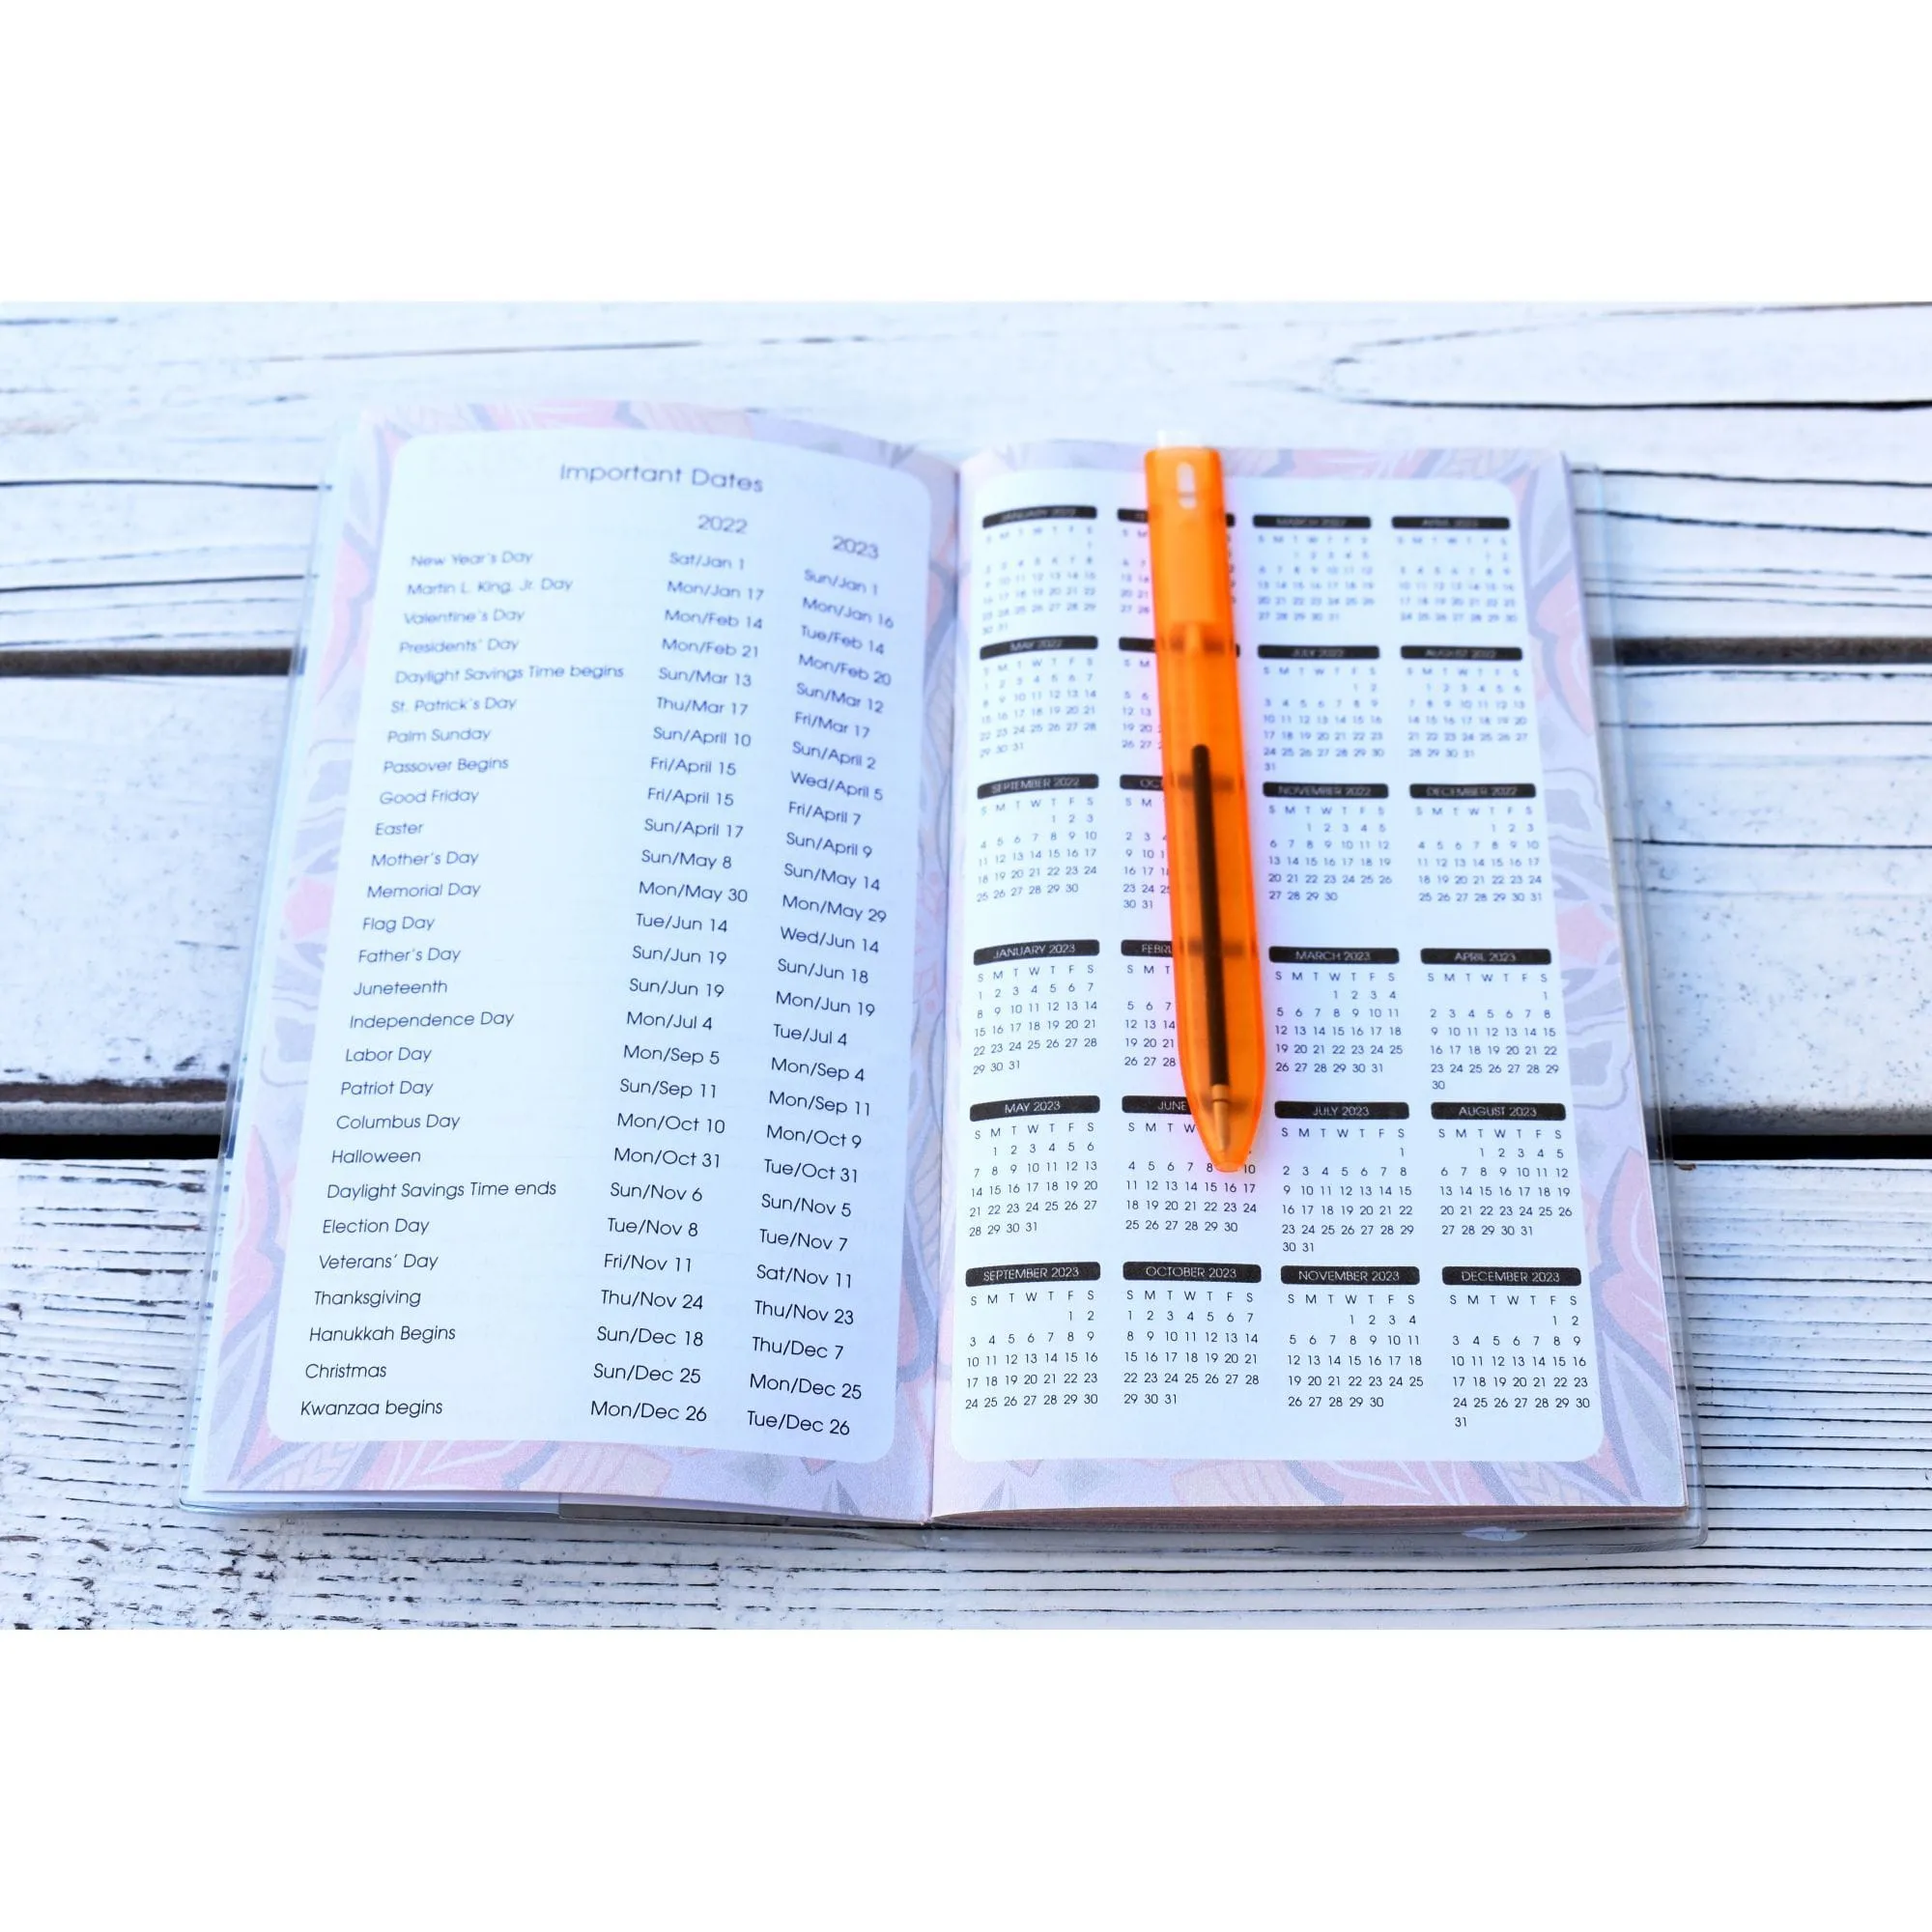 Important Dates
2022 2023
New Year's Day Sat/Jan 1 Sun/Jan 1
Martin L. King, Jr. Day Mon/Jan 17 Mon/Jan 16
Valentine's Day Mon/Feb 14 Tue/Feb 14
Presidents' Day Mon/Feb 21 Mon/Feb 20
Daylight Savings Time begins Sun/Mar 13 Sun/Mar 12
St. Patrick's Day Thu/Mar 17 Fri/Mar 17
Palm Sunday Sun/April 10 Sun/April 2
Passover Begins Fri/April 15 Wed/April 5
Good Friday Fri/April 15 Fri/April 7
Easter Sun/April 17 Sun/April 9
Mother's Day Sun/May 8 Sun/May 14
Memorial Day Mon/May 30 Mon/May 29
Flag Day Tue/Jun 14 Wed/Jun 14
Father's Day Sun/Jun 19 Sun/Jun 18
Juneteenth Sun/Jun 19 Mon/Jun 19
Independence Day Mon/Jul 4 Tue/Jul 4
Labor Day Mon/Sep 5 Mon/Sep 4
Patriot Day Sun/Sep 11 Mon/Sep 11
Columbus Day Mon/Oct 10 Mon/Oct 9
Halloween Mon/Oct 31 Tue/Oct 31
Daylight Savings Time ends Sun/Nov 6 Sun/Nov 5
Election Day Tue/Nov 8 Tue/Nov 7
Veterans' Day Fri/Nov 11 Sat/Nov 11
Thanksgiving Thu/Nov 24 Thu/Nov 23
Hanukkah Begins Sun/Dec 18 Thu/Dec 7
Christmas Sun/Dec 25 Mon/Dec 25
Kwanzaa begins Mon/Dec 26 Tue/Dec 26
JANUARY 2022
MARCH 2022
APRIL 2022
MAY 2022
JULY 2022
AUGUST 2022
SEPTEMBER 2022
S M T W T F S
1 2 3
4 5 6 7 8 9 10
11 12 13 14 15 16 17
18 19 20 21 22 23 24
25 26 27 28 29 30
NOVEMBER 2022
S M T W T F S
1 2 3 4 5
6 7 8 9 10 11 12
13 14 15 16 17 18 19
20 21 22 23 24 25 26
27 28 29 30
DECEMBER 2022
S M T W T F S
1 2 3
4 5 6 7 8 9 10
11 12 13 14 15 16 17
18 19 20 21 22 23 24
25 26 27 28 29 30 31
JANUARY 2023
S M T W T F S
1 2 3 4 5 6 7
8 9 10 11 12 13 14
15 16 17 18 19 20 21
22 23 24 25 26 27 28
29 30 31
S M T
5 6 7
12 13 14
19 20 21
26 27 28
MARCH 2023
S M T W T F S
1 2 3 4
5 6 7 8 9 10 11
12 13 14 15 16 17 18
19 20 21 22 23 24 25
26 27 28 29 30 31
APRIL 2023
S M T W T F S
1
2 3 4 5 6 7 8
9 10 11 12 13 14 15
16 17 18 19 20 21 22
23 24 25 26 27 28 29
30
MAY 2023
S M T W T F S
1 2 3 4 5 6
7 8 9 10 11 12 13
14 15 16 17 18 19 20
21 22 23 24 25 26 27
28 29 30 31
JUNE
S M T W
4 5 6 7 8 10
11 12 13 14 15 16 17
18 19 20 21 22 23 24
25 26 27 28 29 30
JULY 2023
S M T W T F S
1
2 3 4 5 6 7 8
9 10 11 12 13 14 15
16 17 18 19 20 21 22
23 24 25 26 27 28 29
30 31
AUGUST 2023
S M T W T F S
1 2 3 4 5
6 7 8 9 10 11 12
13 14 15 16 17 18 19
20 21 22 23 24 25 26
27 28 29 30 31
SEPTEMBER 2023
S M T W T F S
1 2
3 4 5 6 7 8 9
10 11 12 13 14 15 16
17 18 19 20 21 22 23
24 25 26 27 28 29 30
OCTOBER 2023
S M T W T F S
1 2 3 4 5 6 7
8 9 10 11 12 13 14
15 16 17 18 19 20 21
22 23 24 25 26 27 28
29 30 31
NOVEMBER 2023
S M T W T F S
1 2 3 4
5 6 7 8 9 10 11
12 13 14 15 16 17 18
19 20 21 22 23 24 25
26 27 28 29 30
DECEMBER 2023
S M T W T F S
1 2
3 4 5 6 7 8 9
10 11 12 13 14 15 16
17 18 19 20 21 22 23
24 25 26 27 28 29 30
31